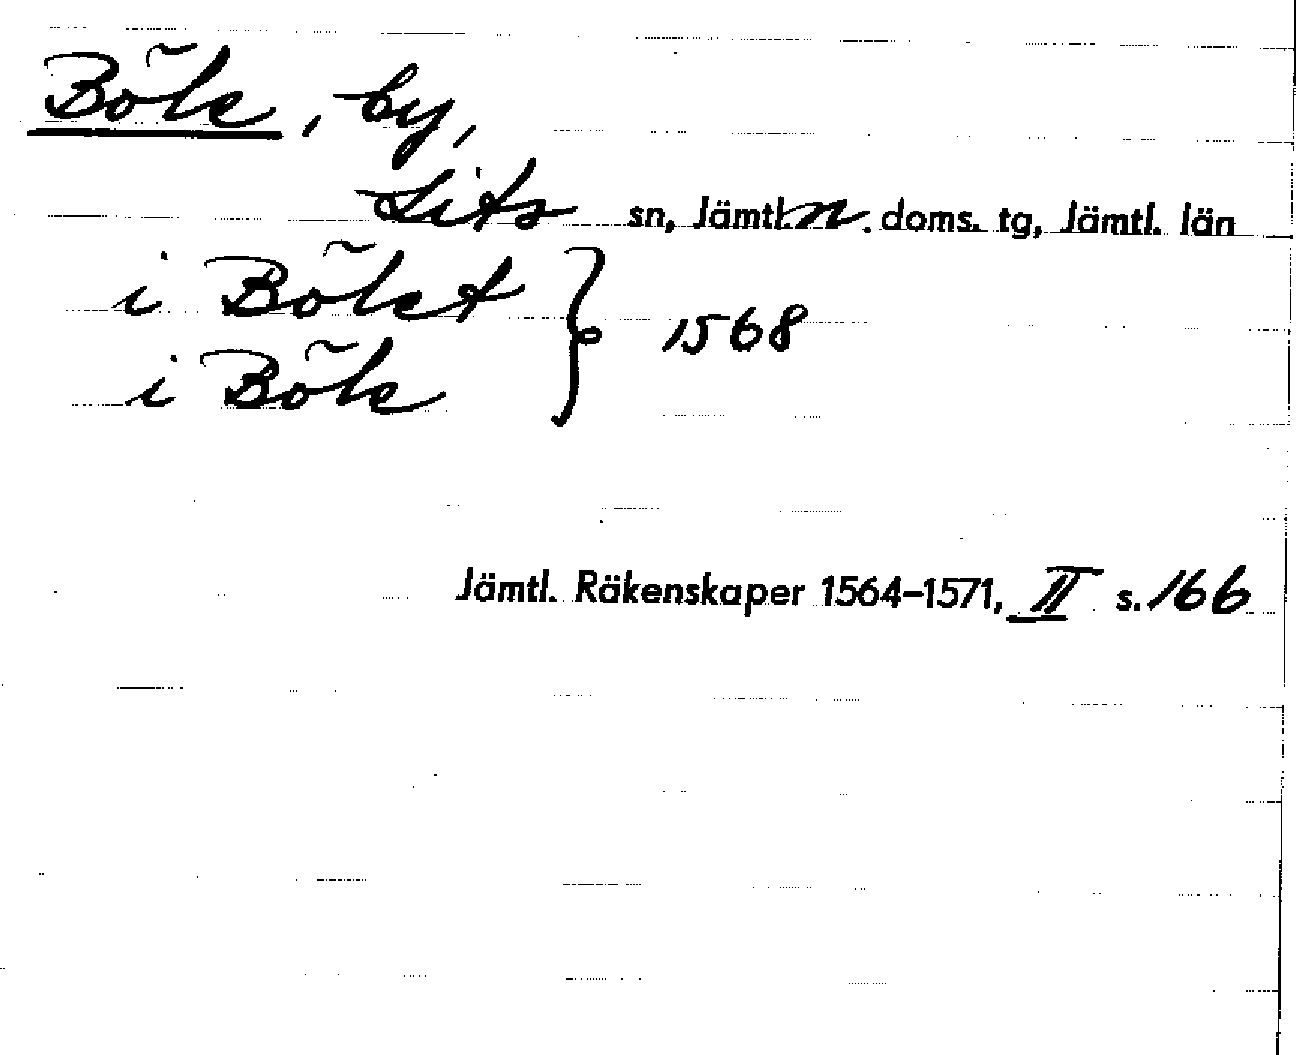 Böle, by,
Lits sn, Jämtl. n. doms. tg, Jämtl. län
i Bölet
i Böle } 1568
Jämtl. Räkenskaper 1564–1571, II s. 166